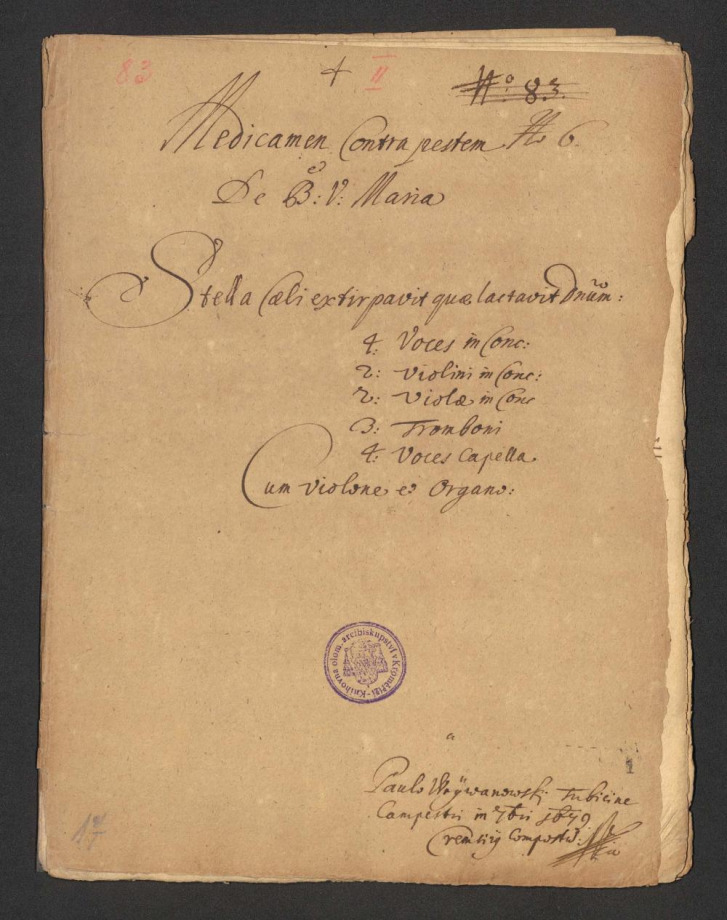 83 + II N° 83.
Medicamen Contra pestem No 6.
De B: V: Maria
Stella Cæli extirpavit quæ lactavit Dnūm:
4: Voces in Conc:
2: Violini in Conc:
2: Violæ in Conc
3: Tromboni
4: Voces Capella
Cum Violone et Organo:
Knihovna olom. arcibiskupství v Kroměříži
à
1
Paulo Weÿwanowskj Tubicine
Campestri in 7bri 1679
Cremsirÿ Compost:
17